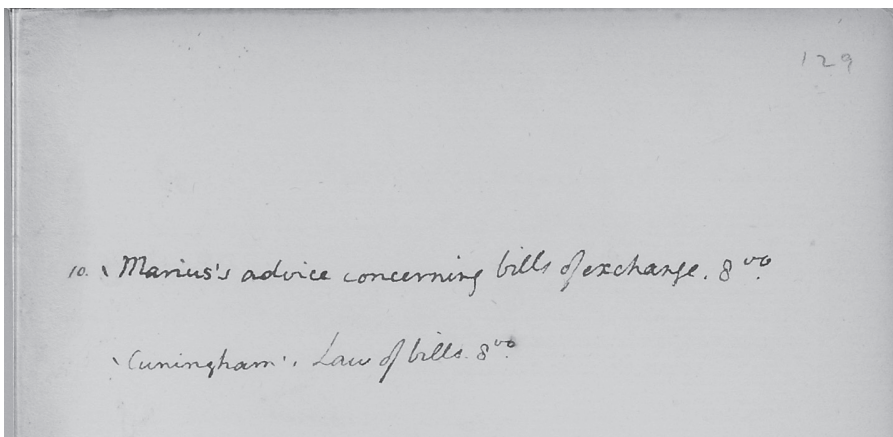 129
10. Marius's advice concerning bills of exchange. 8vo.
Cuningham's Law of bills. 8vo.